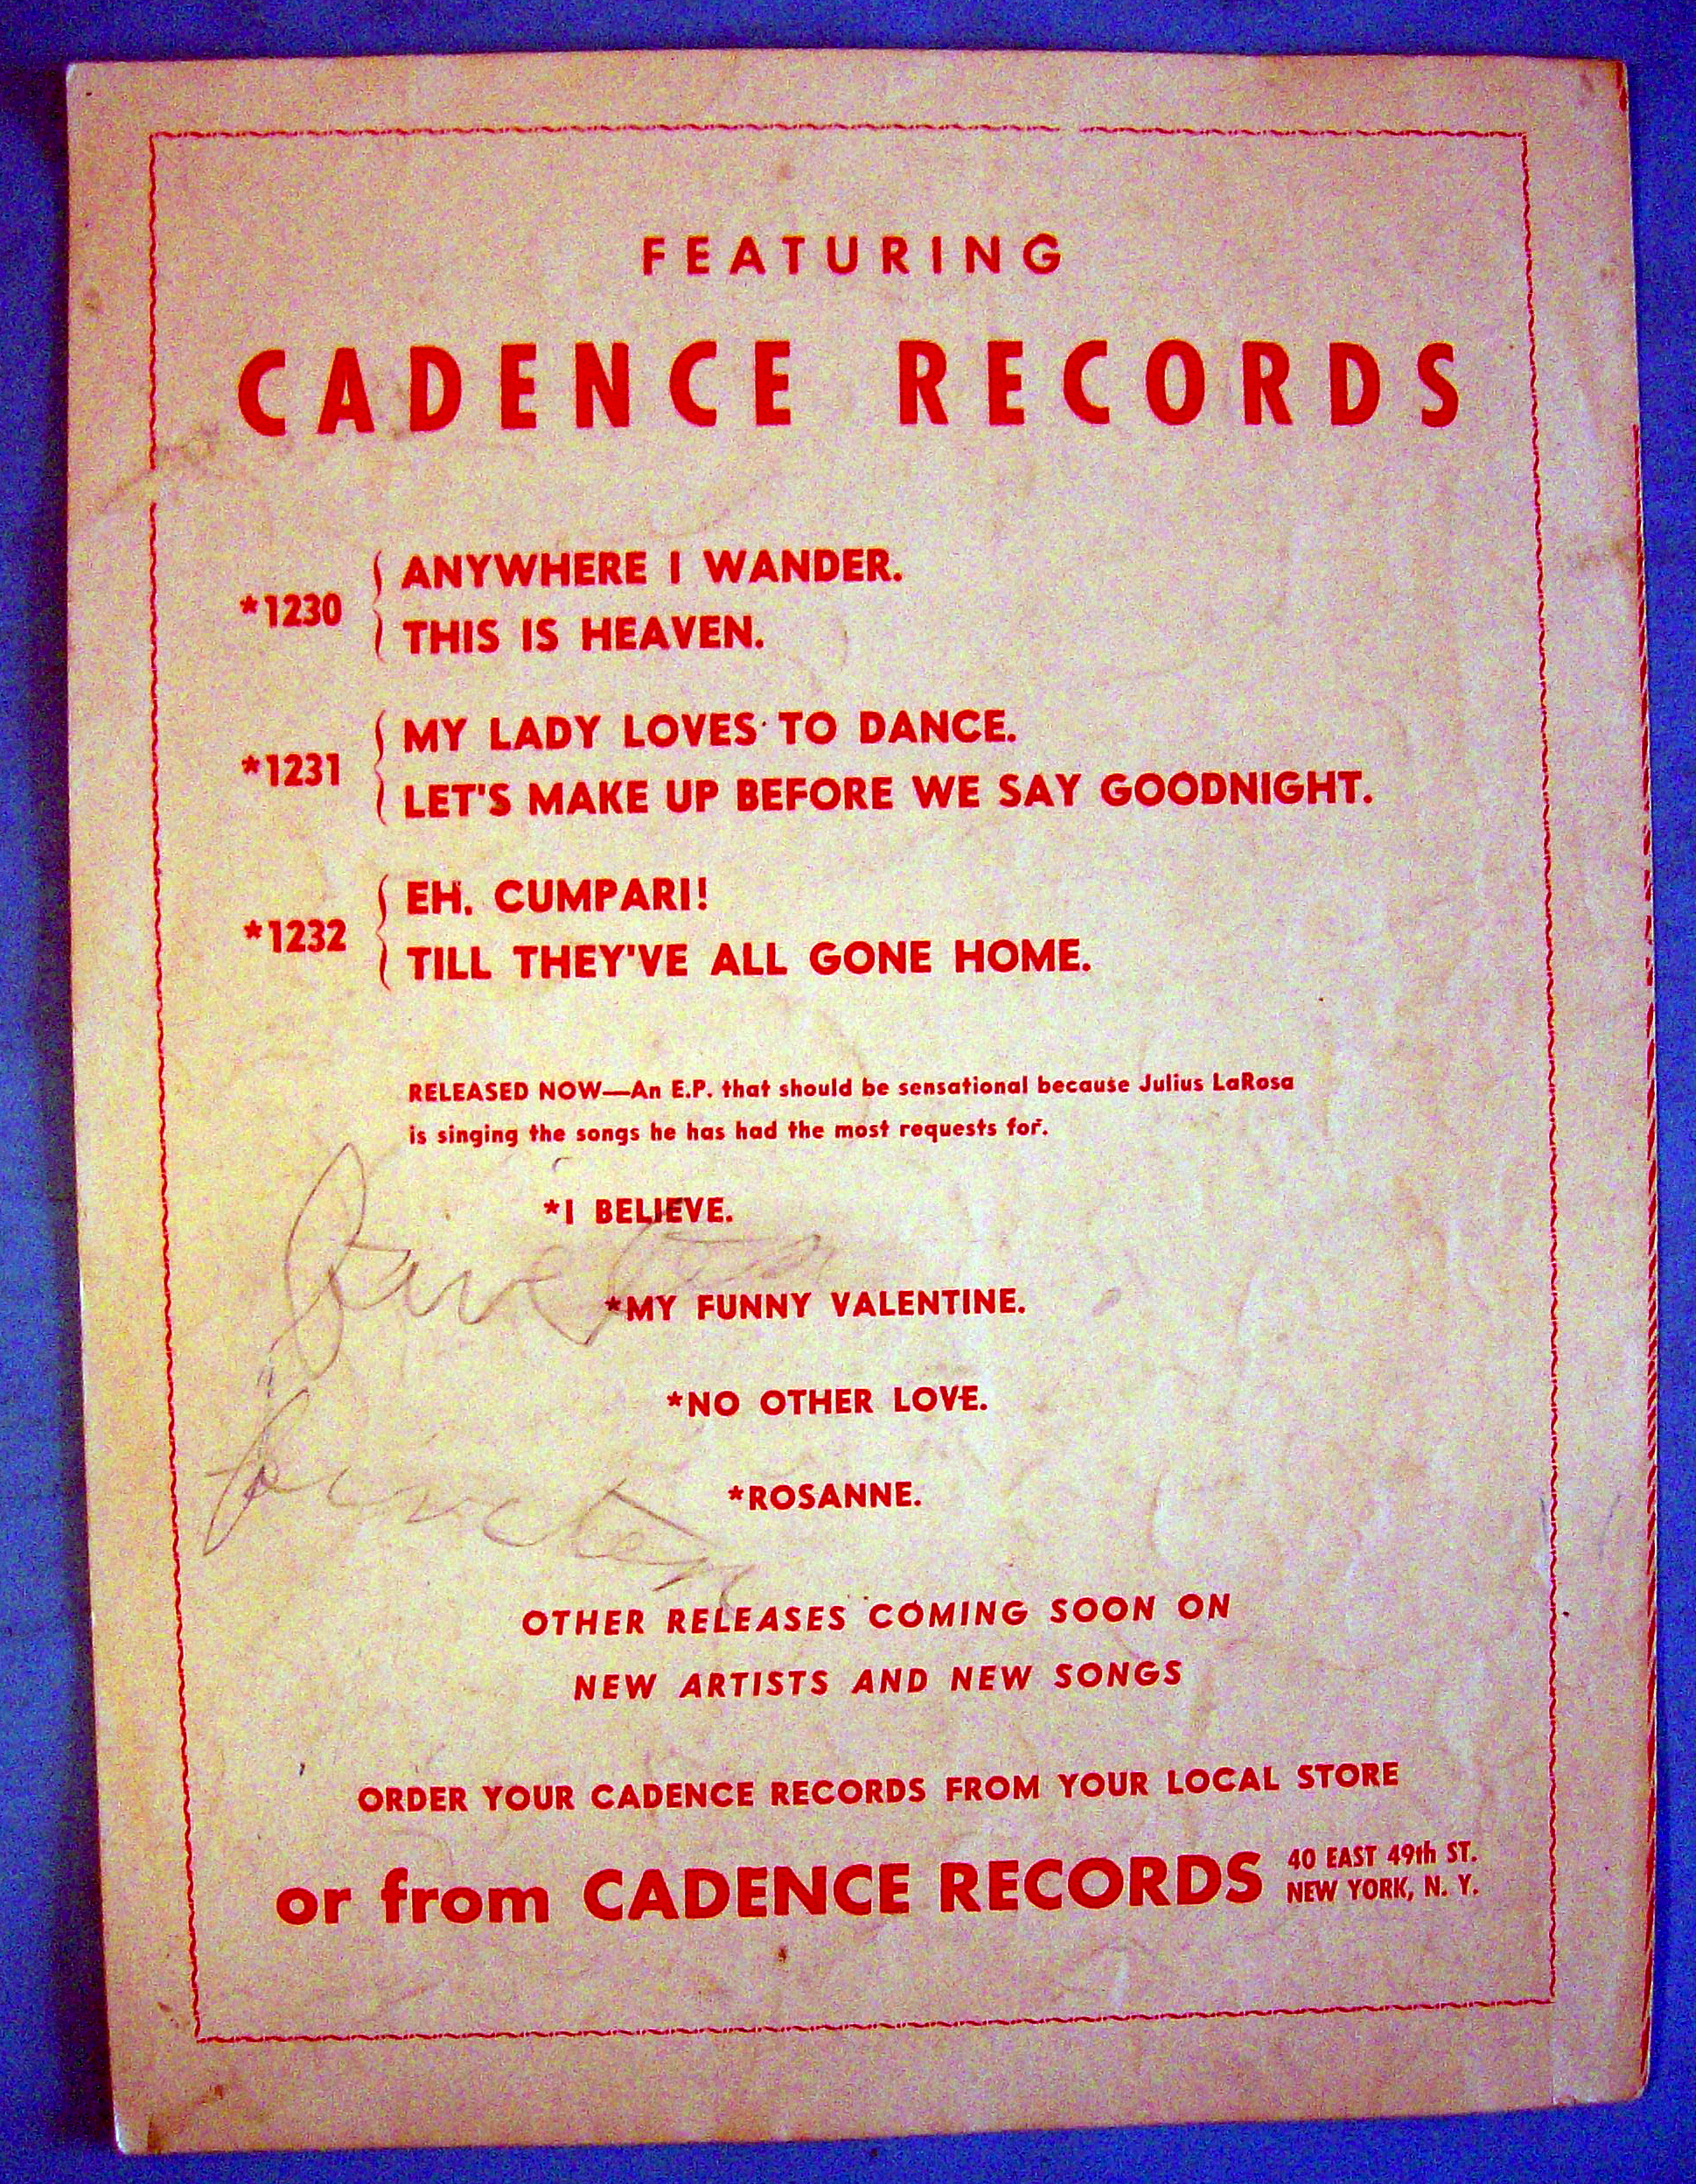 FEATURING
CADENCE RECORDS
*1230
ANYWHERE I WANDER.
THIS IS HEAVEN.
*1231
MY LADY LOVES TO DANCE.
LET'S MAKE UP BEFORE WE SAY GOODNIGHT.
*1232
EH, CUMPARI!
TILL THEY'VE ALL GONE HOME.
RELEASED NOW—An E.P. that should be sensational because Julius LaRosa
is singing the songs he has had the most requests for.
*I BELIEVE.
*MY FUNNY VALENTINE.
*NO OTHER LOVE.
*ROSANNE.
OTHER RELEASES COMING SOON ON
NEW ARTISTS AND NEW SONGS
ORDER YOUR CADENCE RECORDS FROM YOUR LOCAL STORE
or from CADENCE RECORDS
40 EAST 49th ST.
NEW YORK, N. Y.